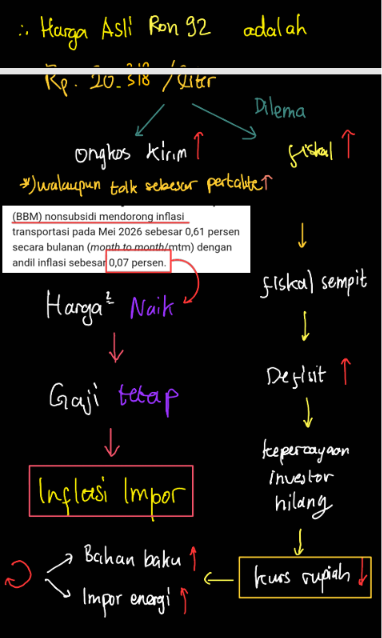 ∴ Harga Asli Ron 92 adalah
Rp. 20.318 /Liter
Dilema
Ongkos Kirim ↑
fiskal ↑
*) walaupun tdk sebesar pertalite ↑
(BBM) nonsubsidi mendorong inflasi
transportasi pada Mei 2026 sebesar 0,61 persen
secara bulanan (month to month/mtm) dengan
andil inflasi sebesar 0,07 persen.
Harga² Naik
Gaji tetap
Inflasi Impor
Bahan baku ↑
Impor energi ↑
fiskal sempit
Defisit ↑
kepercayaan
investor
hilang
kurs rupiah ↓